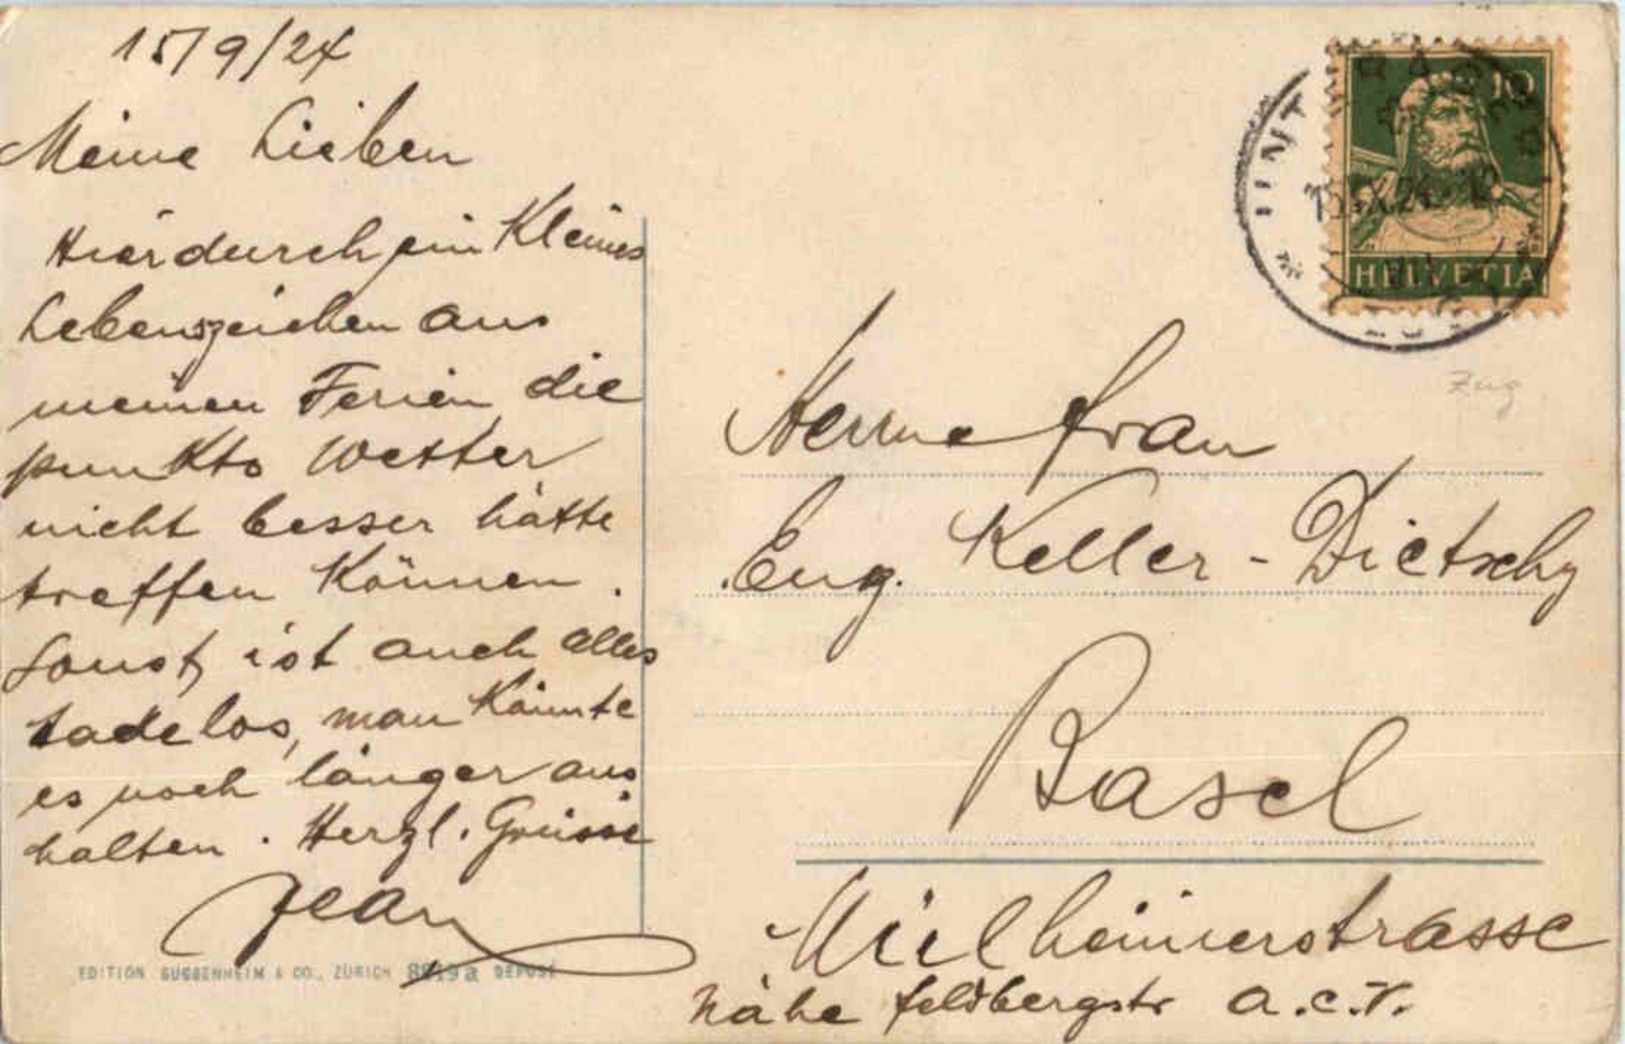 15/9/24
Meine Lieben
Hierdurch ein Kleines
Lebenszeichen aus
meinen Ferien, die
punkto Wetter
nicht besser hätte
treffen Können.
Sonst, ist auch alles
tadelos, man Könnte
es noch länger aus
halten. Herzl. Grüsse
Jean
EDITION GUGGENHEIM & CO., ZÜRICH 8819a DEPOSE
10
HELVETIA
UNT
15.IX.24
Zug
Herrn Frau
Eug. Keller-Dietschy
Basel
Mülheimerstrasse
Nähe Feldbergstr a.c.V.